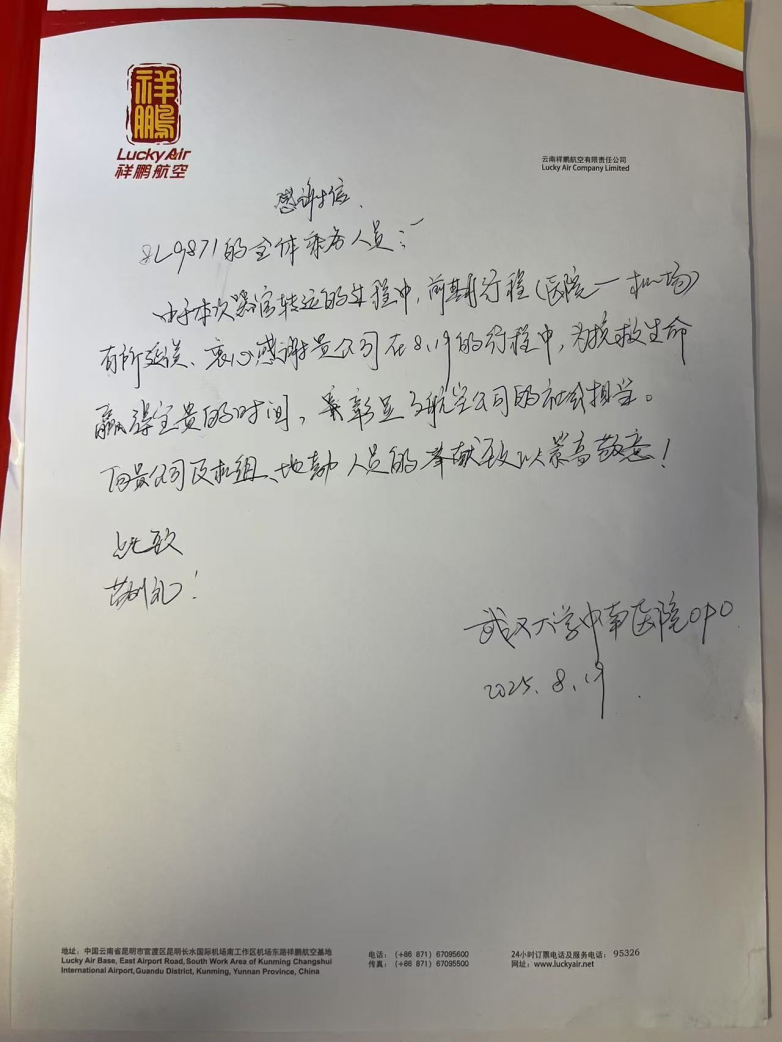 祥鹏
Lucky Air
祥鹏航空
云南祥鹏航空有限责任公司
Lucky Air Company Limited
感谢信
8L9871的全体乘务人员：
由于本次器官转运的过程中，前期行程（医院—机场）
有所延误、衷心感谢贵公司在8.19的行程中，为挽救生命
赢得宝贵的时间，彰显了航空公司的社会担当。
向贵公司及机组、地勤人员的奉献致以最高敬意！
此致
敬礼！
武汉大学中南医院OPO
2025.8.19
地址：中国云南省昆明市官渡区昆明长水国际机场南工作区机场东路祥鹏航空基地
Lucky Air Base, East Airport Road, South Work Area of Kunming Changshui
International Airport, Guandu District, Kunming, Yunnan Province, China
电话：（+86 871）67095600
传真：（+86 871）67095500
24小时订票电话及服务电话：95326
网址：www.luckyair.net